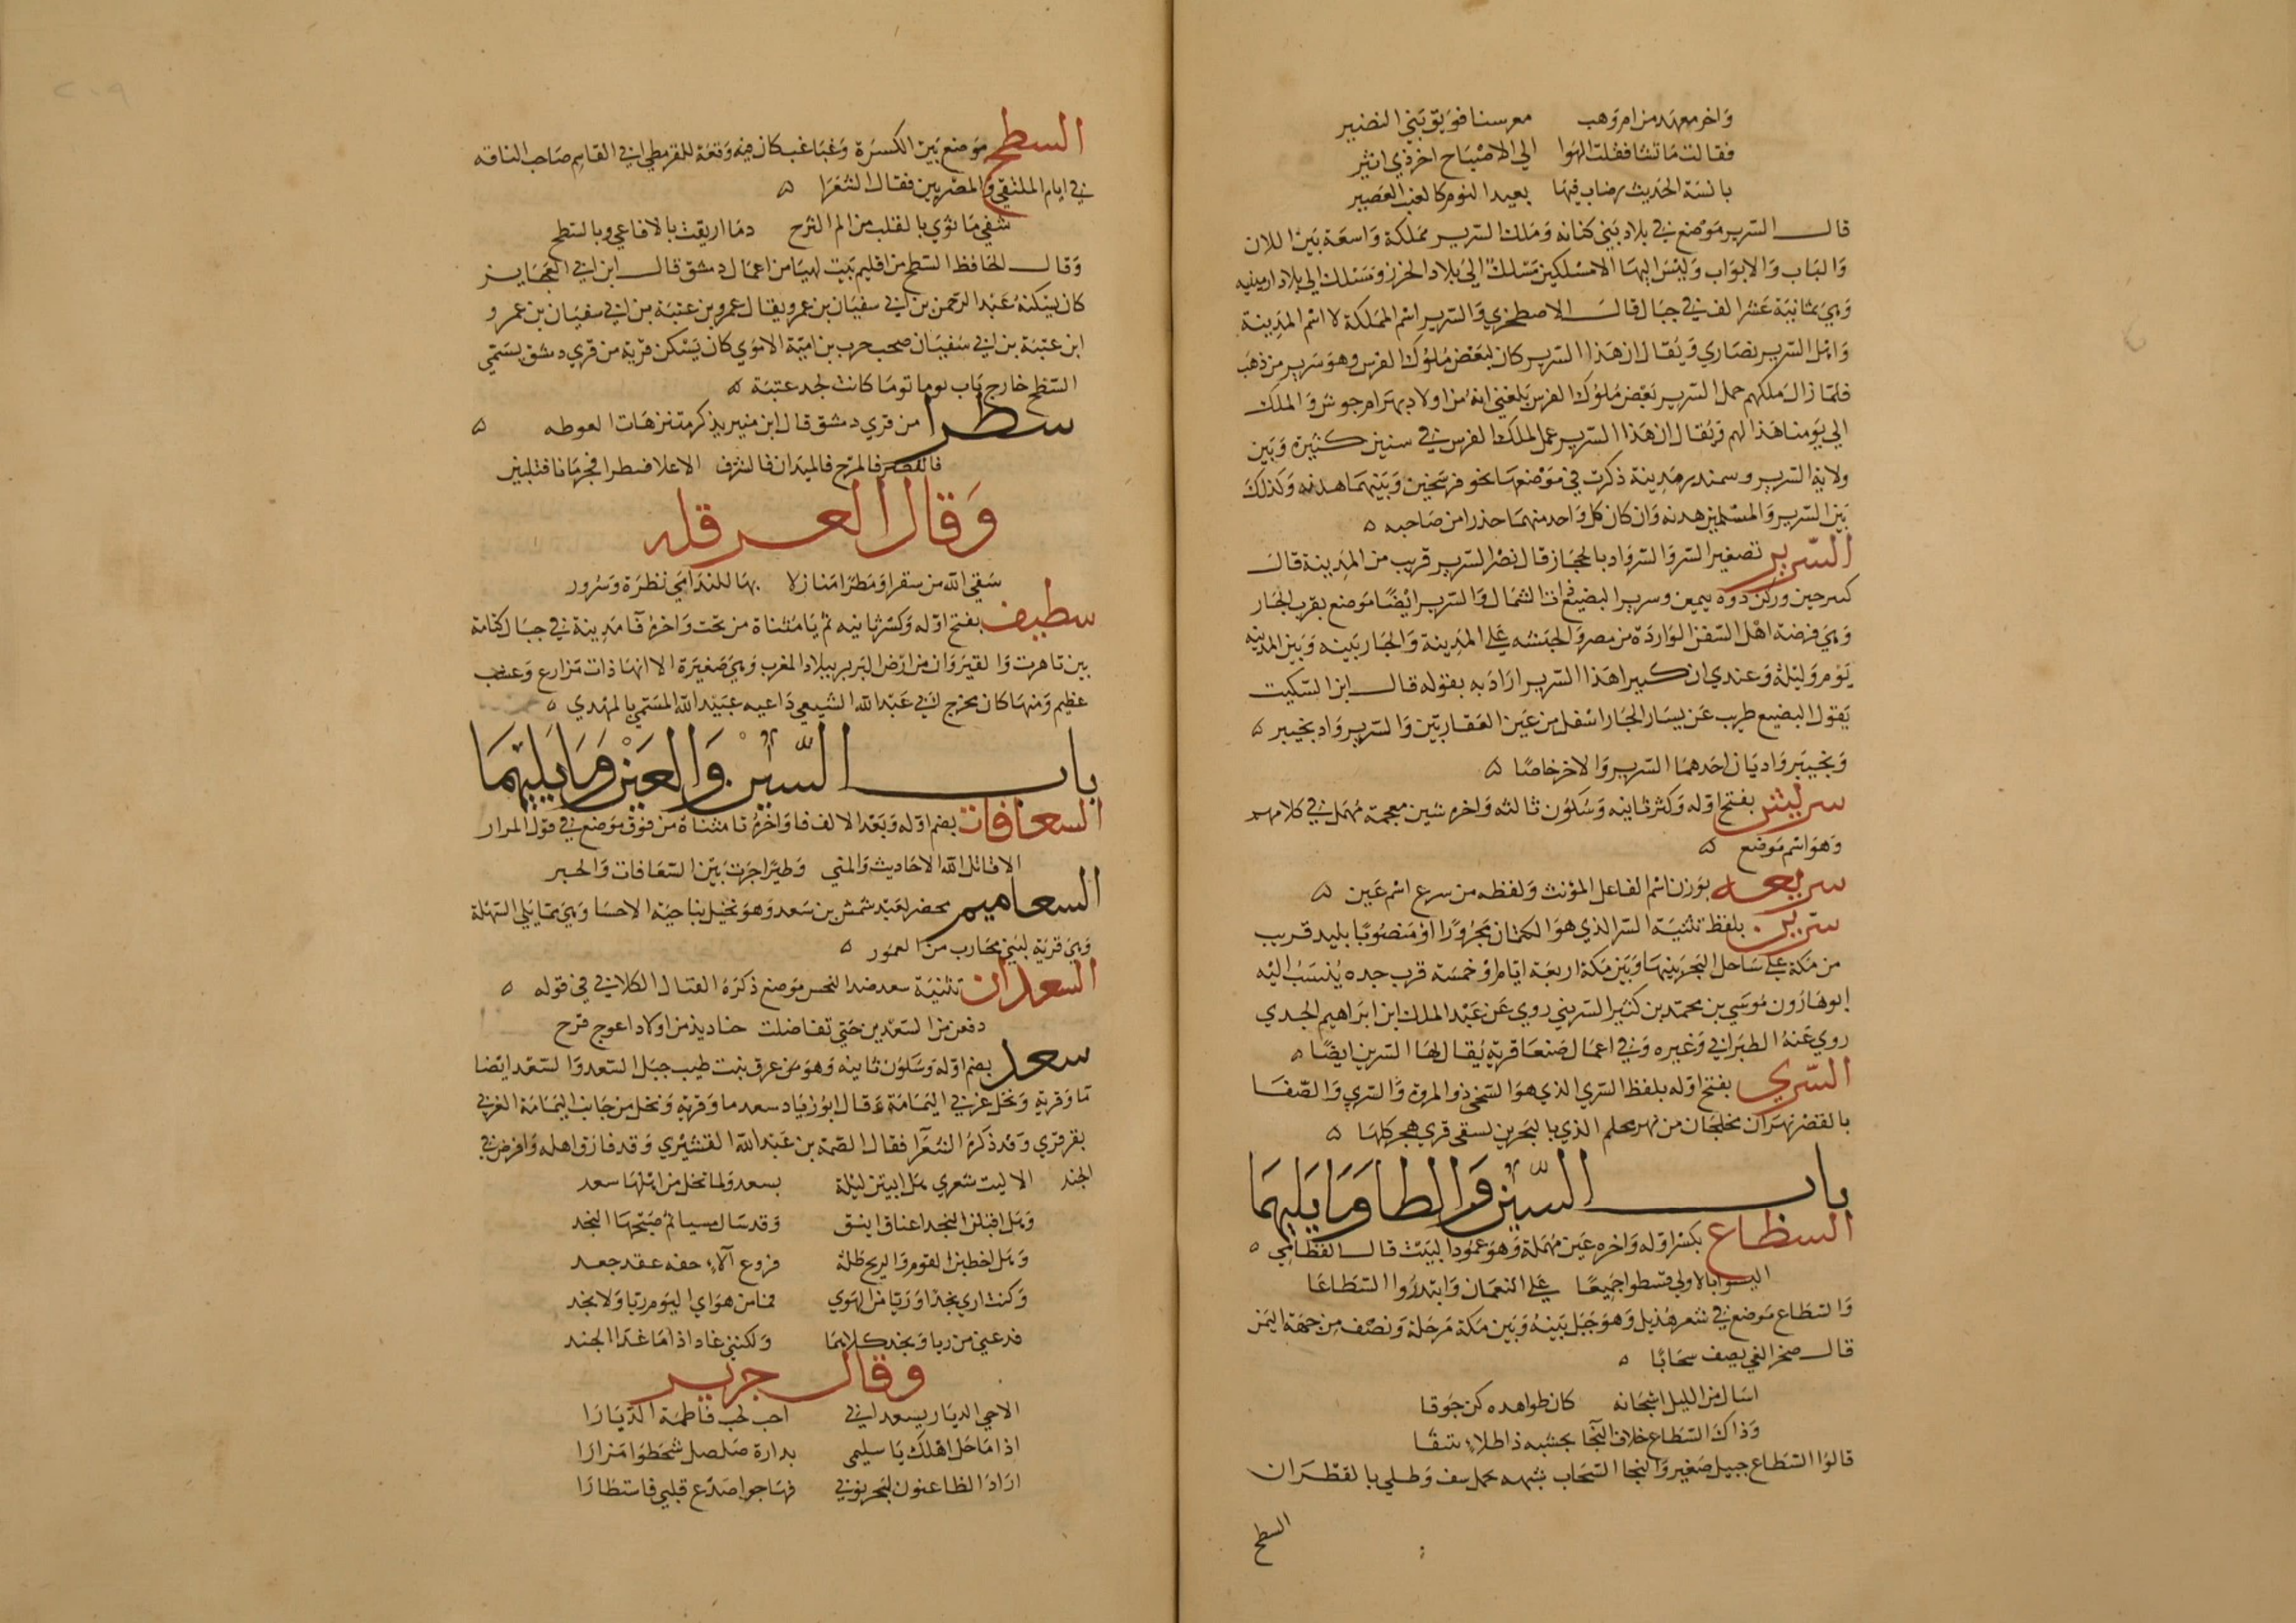 واخر معهد من ام وهب معرسنا فويق بني النضير
فقالت ما تشا فقلت الهوا الى الاصباح اخر ذي اثير
بانسة الحديث رضاب فيها بعيد النوم كالعنب العصير
قال السرير موضع في بلاد بني كنانه وملك السرير مملكة واسعة بين اللان
والباب والابواب وليس اليها الا مسلكين مسلك الى بلاد الخرز ومسلك الى بلاد ارمينيه
وهي ثمانية عشر الف في جبال قال الاصطخري والسرير اسم المملكة لا اسم المدينة
واهل السرير نصاري ويقال ان هذا السرير كان لبعض ملوك الفرس وهو سرير من ذهب
فلما زال ملكهم حمل السرير بعض ملوك الفرس بلغني انه من اولاد بهرام جوش والملك
الي يومنا هذا لهم ويقال ان هذا السرير عمل لملك الفرس في سنين كثيرة وبين
ولاية السرير وسمندر مدينة ذكرت في موضعها نحو فرسخين وبينهما هدنه وكذلك
بين السرير والمسلمين هدنه وان كان كل واحد منهما حذرا من صاحبه ه
السرير تصغير السر والسر واد بالحجاز قال نصر السرير قريب من المدينة قال
كسرحين وركن دوه يمين وسرير البضيع ذات الشمال والسرير ايضا موضع بقرب الجار
وهي فرضة اهل السفن الواردة من مصر والحبشه علي المدينة والجار بينه وبين المدينه
يوم وليلة وعندي ان كثيرا هذا السرير اراد به بقوله قال ابن السكيت
يقول البضيع طريب عن يسار الجار اسفل من عين الغفاريين والسرير واد بخيبر ه
وبخيبر واديان احدهما السرير والاخر خاصا ه
سريش بفتح اوله وكسر ثانيه وسكون ثالثه واخره شين معجمة مهمل في كلامهم
وهو اسم موضع ه
سريعه بوزن اسم الفاعل المؤنث ولفظه من سرع اسم عين ه
سرين بلفظ تثنية السر الذي هو الكتمان مجرورا او منصوبا بليد قريب
من مكة علي ساحل البحر بينها وبين مكة اربعة ايام او خمسة قرب جده ينسب اليه
ابو هارون موسي بن محمد بن كثير السريني روي عن عبد الملك ابن ابراهيم الجدي
روي عنه الطبراني وغيره وفي اعمال صنعا قرية يقال لها السرين ايضا ه
السري بفتح اوله بلفظ السري الذي هو السخي ذو المروة والسري والصفا
بالقصر نهران مخلجان من نهر محلم الذي بالبحرين يسقي قري هجر كلها ه
باب السين والطا وما يليهما
السطاع بكسر اوله واخره عين مهملة وهو عمود البيت قال القطامي ه
اليسوا بالاولي قسطوا جميعا علي النعمان وابتدروا السطاعا
والسطاع موضع في شعر هذيل وهو جبل بينه وبين مكة مرحلة ونصف من جهة اليمن
قال صخر الغي يصف سحابا ه
اسال من الليل اشجانه كان ظواهده كن جوقا
وذاك السطاع خلاف النجا تحسبه ذا طلاء نتيفا
قالوا السطاع جبيل صغير والنجا السحاب شبهه بجمل نتف وطلي بالقطران
السطح
السطح موضع بين الكسرة وغباغب كان فيه وقعة للقرمطي ابي القاسم صاحب الناقه
في ايام الملتقي والمصريين فقال الشعرا ه
شفي ما ثوي بالقلب من الم الترح دما اريقت بالافاعي وبالسطح
وقال الحافظ السطح من اقليم بيت لهيا من اعمال دمشق قال ابن ابي العجايز
كان يسكنه عبد الرحمن بن ابي سفيان بن عمرو يقال عمرو بن عتبة بن ابي سفيان بن عمرو
ابن عتبة بن ابي سفيان صخب حرب بن امية الاموي كان يسكن قرية من قري دمشق يسمي
السطح خارج باب توما كانت لجد عتبة ه
سطرا من قري دمشق قال ابن منير يذكر متنزهات الغوطه ه
فالقصر فالمرج فالميدان فالشرف الاعلا فسطرا فجرمانا فقلبين
وقال العرقله
سقي الله من سقرا ومطرا منازلا بها للندامي نظرة وسرور
سطيف بفتح اوله وكسر ثانيه ثم يا مثناة من تحت واخره فا مدينة في جبال كتامة
بين تاهرت والقيروان من ارض البربر ببلاد المغرب وهي صغيرة الا انها ذات مزارع وعشب
عظيم ومنها كان مخرج ابي عبد الله الشيعي داعيه عبيد الله المسمي بالمهدي ه
باب السين والعين وما يليهما
السعافات بضم اوله وبعد الالف فا واخره تا مثناة من فوق موضع في قول المرار
الا قاتل الله الاحاديث والمني وطيرا جرت بين السعافات والحبر
السعاميم محضر لعبد شمس بن سعد وهو نخيل بناحية الاحسا وهي مما يلي السهلة
وهي قرية لبني محارب من العمور ه
السعدان تثنية سعد ضد النحس موضع ذكره القتال الكلابي في قوله ه
دفعن من السعدين حتي تفاضلت حناديذ من اولاد اعوج قرح
سعد بضم اوله وسكون ثانيه وهو من عرق نبت طيب جبل السعد والسعد ايضا
ما وقرية ونخل غربي اليمامة وقال ابو زياد سعد ما وقرية ونخل من جانب اليمامة الغربي
بقرقري وقد ذكره الشعرا فقال الصمة بن عبد الله القشيري وقد فارق اهله وافرض في
الجند الا ليت شعري هل ابيتن ليلة بسعد ولما تخل من اهلها سعد
وهل اقبلن النجد اعناق اينق وقد سال مسيا ثم صبحها النجد
وهل اخطبن القوم والريح طلة فروع آلاء حفه عقد جعد
وكنت اري نجدا وريا من الهوي فما من هواي اليوم ريا ولا نجد
فدعني من ريا ونجد كلاهما ولكنني غاد اذا ما غدا الجند
وقال جرير
الا حي الديار بسعد اني احب لحب فاطمة الديارا
اذا ما حل اهلك يا سليمي بدارة صلصل شحطوا مزارا
اراد الظاعنون ليحزنوني فهاجوا صدع قلبي فاستطارا